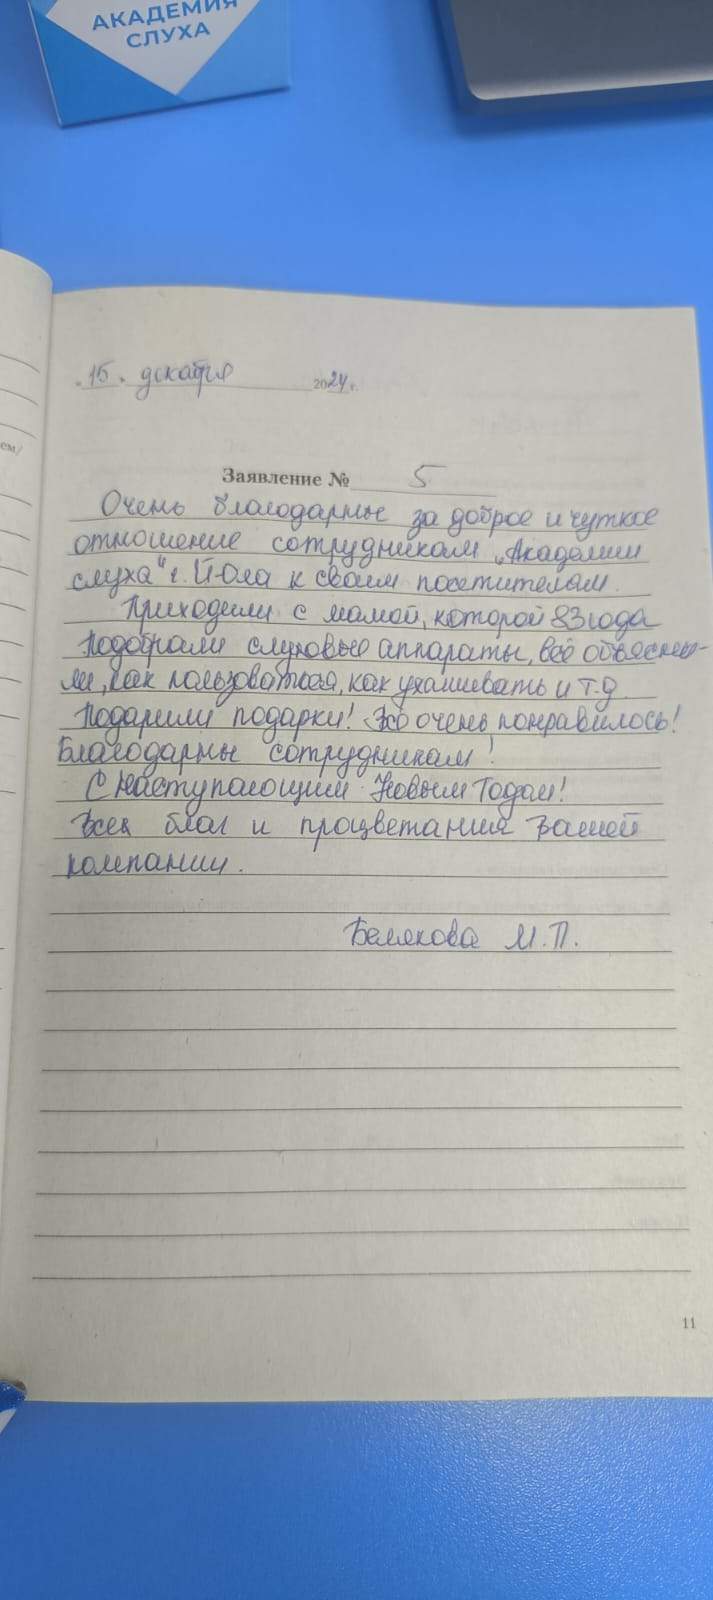 АКАДЕМИЯ
СЛУХА
ем/
„15„ декабря 2024 г.
Заявление № 5
Очень благодарные за доброе и чуткое
отношение сотрудникам „Академии
слуха" г. Й-Ола к своим посетителям.
Приходили с мамой, которой 83 года
Подобрали слуховые аппараты, всё объясни-
ли, как пользоваться, как ухаживать и т.д.
Подарили подарки! Всё очень понравилось!
Благодарны сотрудникам!
С наступающим Новым Годом!
Всех благ и процветания Вашей
компании.
Белякова М.П.
11